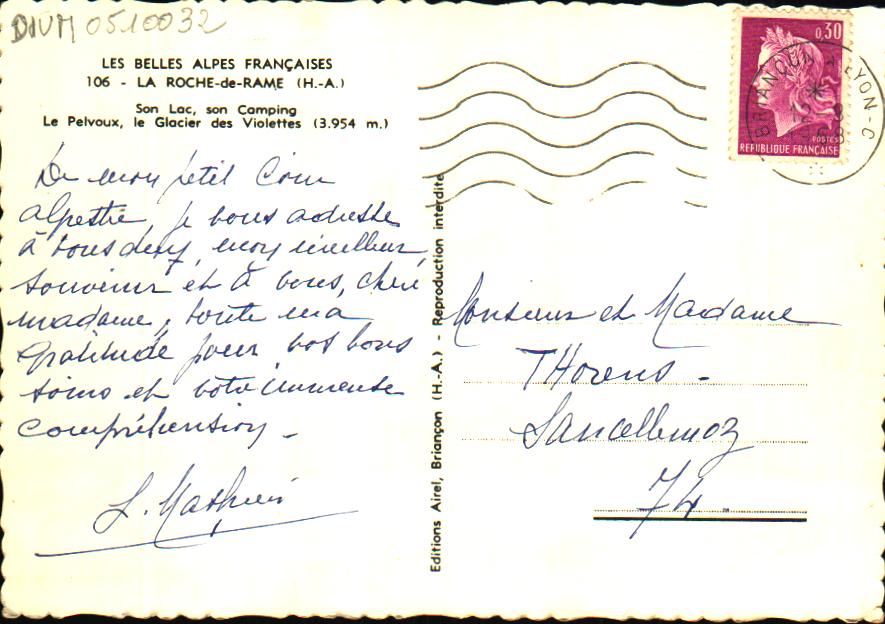 DIVM 0510032
LES BELLES ALPES FRANÇAISES
106 - LA ROCHE-de-RAME (H.-A.)
Son Lac, son Camping
Le Pelvoux, le Glacier des Violettes (3.954 m.)
De mon petit coin
alpestre, je vous adresse
à tous deux, mon meilleur
souvenir et à vous, chère
madame, toute ma
gratitude pour vos bons
soins et votre immense
compréhension -
L. Mathieu
Editions Airel, Briançon (H.-A.) - Reproduction interdite
0,30
POSTES
REPUBLIQUE FRANÇAISE
BRIANÇON A LYON-C
Monsieur et Madame
THorens -
Sancellemoz
74.